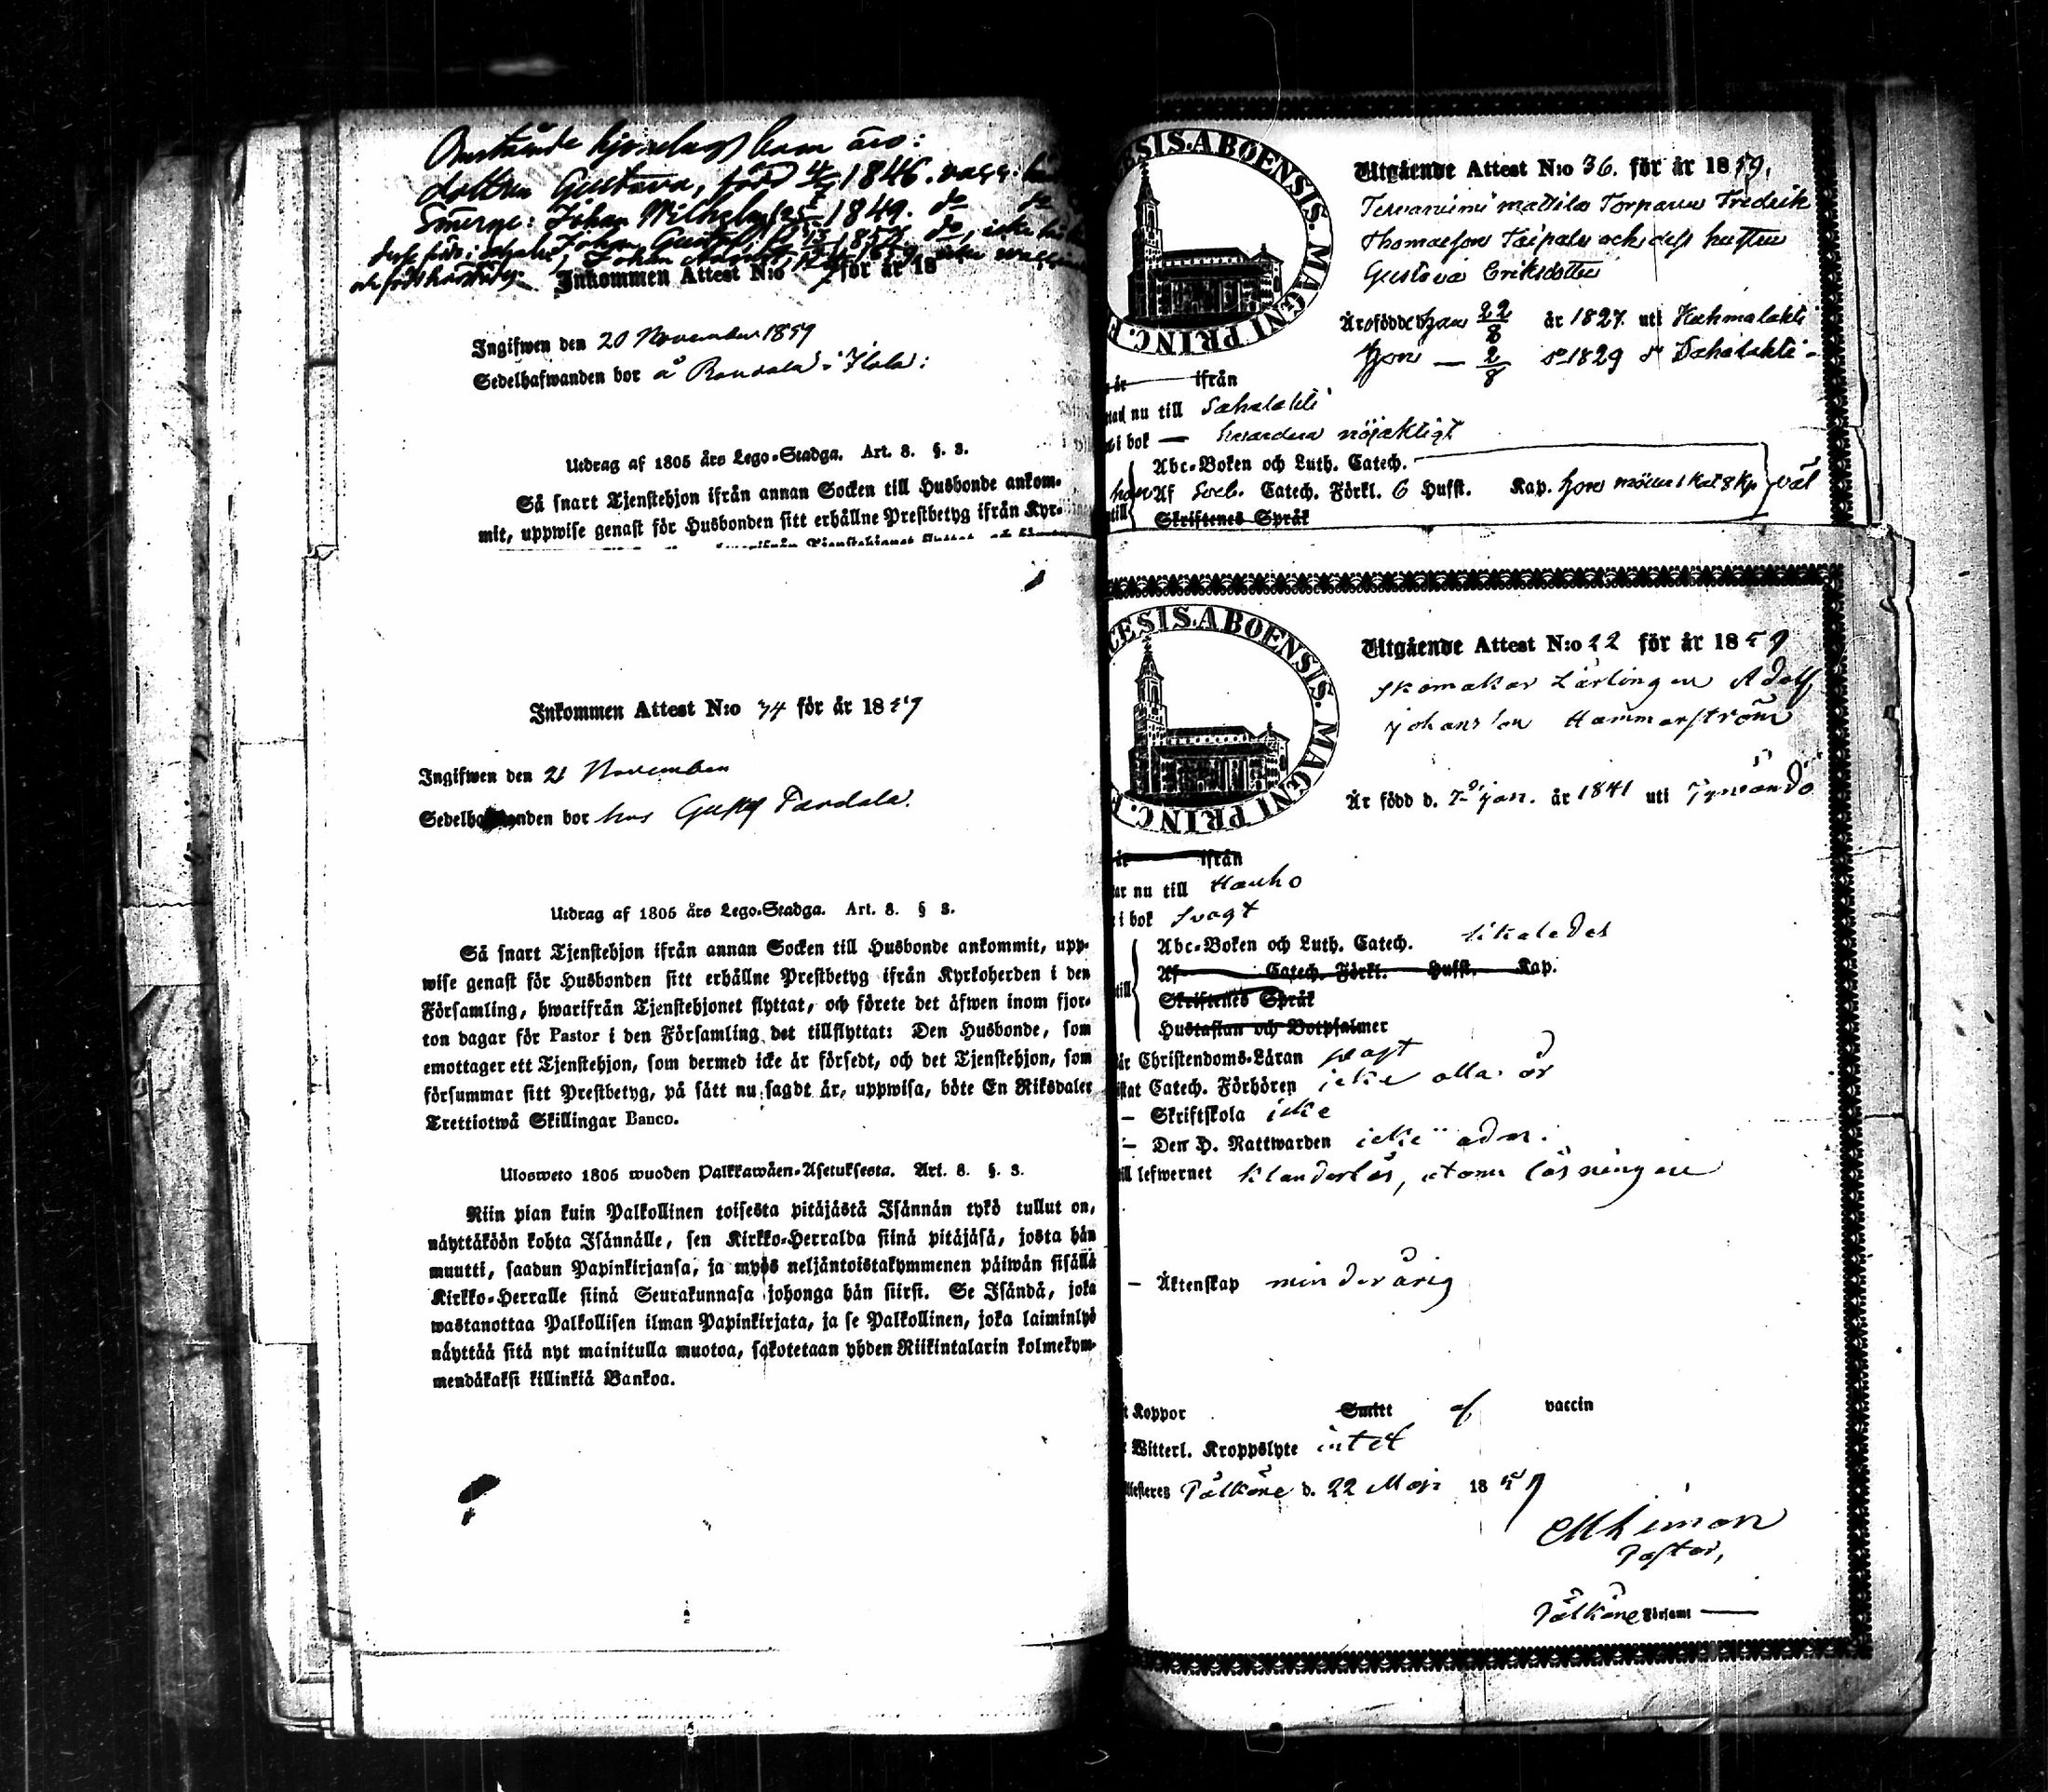 Omstående hjonelags barn äro:
dottren Gustava, född 1846. vacc:
Sönerne: Johan Wilhelm 1849. do do
Johan Gustaf, 1857 do, icke
Johan
Inkommen Attest N:o för år 18
Ingifwen den 20 November 1859
Sedelhafwanden bor å Rondala i Ilola:
Utdrag af 1805 års Lego-Stadga. Art. 8. §. 3.
Så snart Tjenstehjon ifrån annan Socken till Husbonde ankom-
mit, uppwise genast för Husbonden sitt erhållne Prestbetyg ifrån Kyr-
Inkommen Attest N:o 74 för år 1859
Ingifwen den 21 November
Sedelhafwanden bor hos Gustaf Pardala.
Utdrag af 1805 års Lego-Stadga. Art. 8. § 3.
Så snart Tjenstehjon ifrån annan Socken till Husbonde ankommit, upp-
wise genast för Husbonden sitt erhållne Prestbetyg ifrån Kyrkoherden i den
Församling, hwarifrån Tjenstehjonet flyttat, och förete det äfwen inom fjor-
ton dagar för Pastor i den Församling det tillflyttat: Den Husbonde, som
emottager ett Tjenstehjon, som dermed icke är försedt, och det Tjenstehjon, som
försummar sitt Prestbetyg, på sätt nu sagdt är, uppwisa, böte En Riksdaler
Trettiotwå Skillingar Banco.
Ulosweto 1805 wuoden Palkkawäen-Asetuksesta. Art. 8. §. 3.
Niin pian kuin Palkollinen toisesta pitäjästä Isännän tykö tullut on,
näyttäköön kohta Isännälle, sen Kirkko-Herralda siinä pitäjäsä, josta hän
muutti, saadun Papinkirjansa, ja myös neljäntoistakymmenen päiwän sisällä
Kirkko-Herralle siinä Seurakunnasa johonga hän siirsi. Se Isändä, joka
wastanottaa Palkollisen ilman Papinkirjata, ja se Palkollinen, joka laiminlyö
näyttää sitä nyt mainitulla muotoa, sakotetaan yhden Riikintalarin kolmekym-
mendäkaksi killinkiä Bankoa.
CESIS. ABOENSIS. MAGNI PRINC. F
Utgående Attest N:o 36. för år 1859.
Torparen Fredrik
Thomasson Taipale och dess hustru
Gustava Eriksdotter
Äro födde han 22/8 år 1827. uti Kuhmalahti
hon — 2/8 do 1829 do Sahalahti
är ifrån
nu till Sahalahti
i bok — hwardera nöjaktigt
Abc-Boken och Luth. Catech.
han Af Sveb. Catech. Förkl. 6 Hufst. Kap. hon
till Skriftenes Språk
väl
CESIS. ABOENSIS. MAGNI PRINC. F
Utgående Attest N:o 22 för år 1859
Skomakar Lärlingen Adolf
Johansson Hammarström
Är född d. Jan. år 1841 uti Tyrvändö
är ifrån
ar nu till Hauho
i bok svagt
Abc-Boken och Luth. Catech. likaledes
Af Catech. Förkl. Hufst. Kap.
till Skriftenes Språk
Hustaflan och Botpsalmer
är Christendoms-Läran svagt
istat Catech. Förhören icke alla år
— Skriftskola icke
— Den H. Nattwarden icke adm.
ill lefwernet klanderlös, utom läsningen
— Äktenskap minderårig
t Koppor Smitt af vaccin
Witterl. Kroppslyte intet
Attesteres Pälkäne d. 22 Maji 1859
Limon
Pastor,
Pälkäne Församl